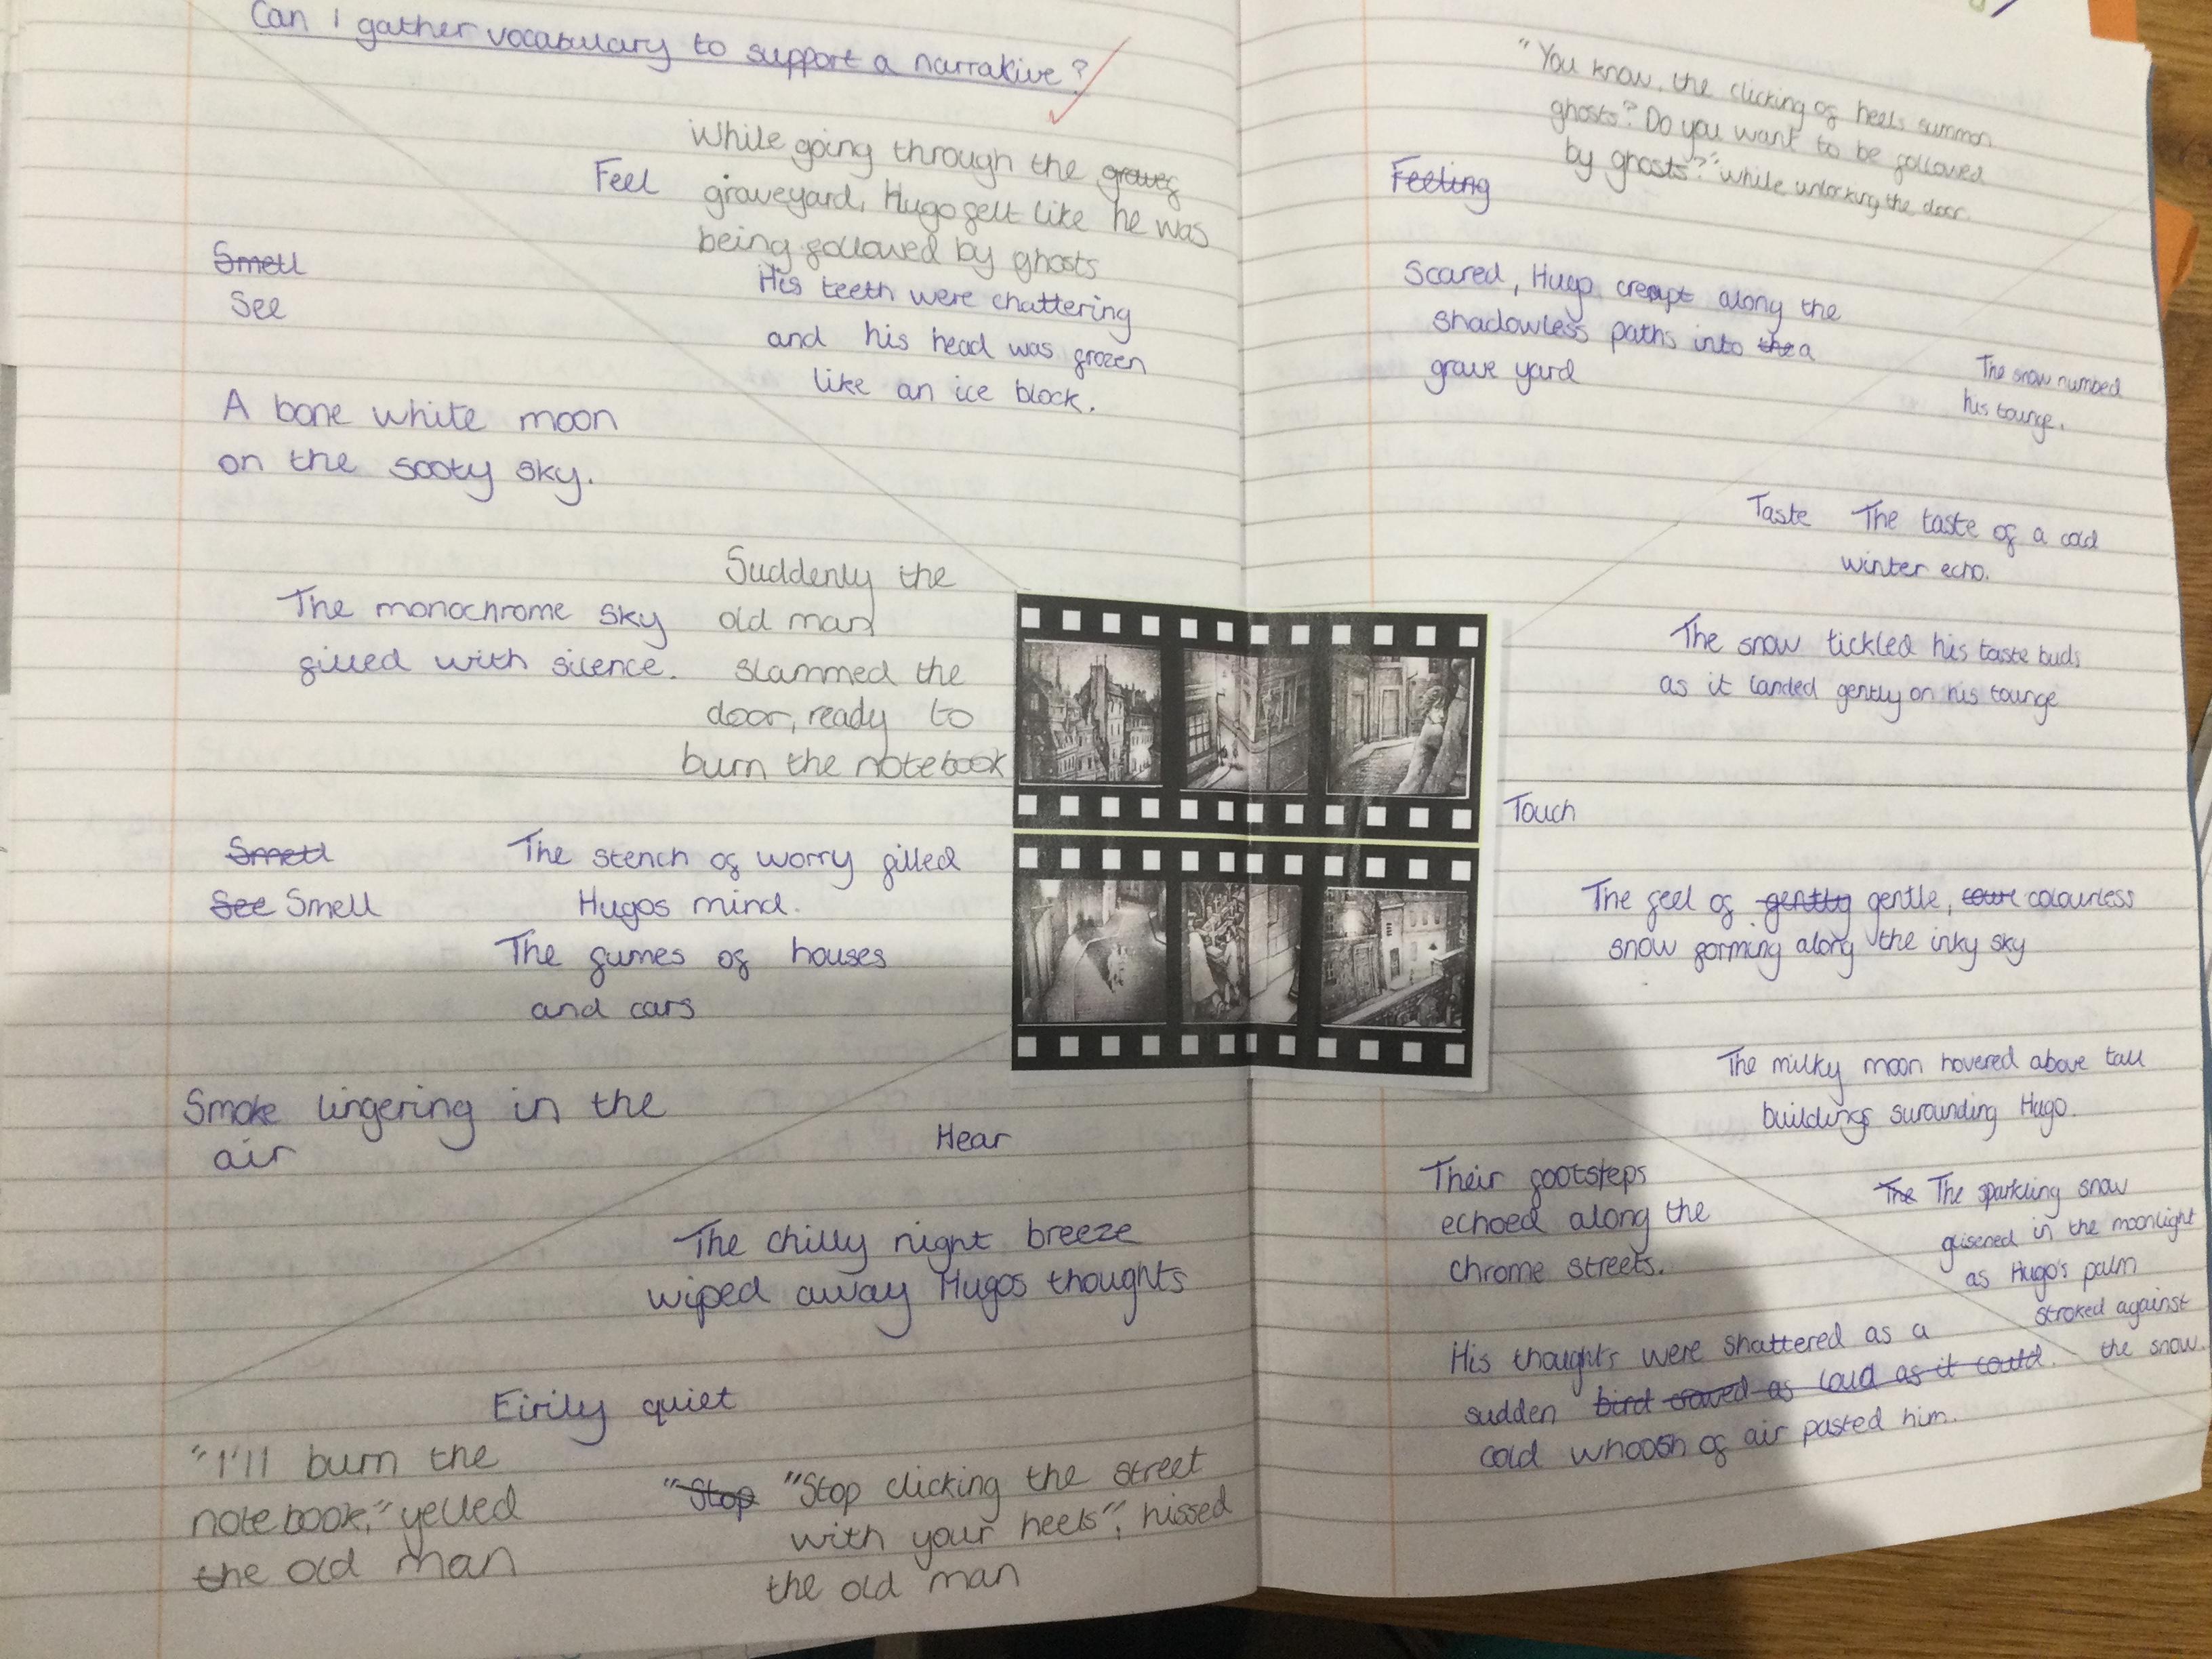 Can I gather vocabulary to support a narrative?
While going through the graves
Feel
graveyard, Hugo felt like he was
being followed by ghosts
His teeth were chattering
and his head was frozen
like an ice block.
Smell
See
A bone white moon
on the sooty sky.
The monochrome sky
filled with silence.
Suddenly the
old man
slammed the
door, ready to
burn the notebook
Smell
See Smell
The stench of worry filled
Hugos mind.
The fumes of houses
and cars
Smoke lingering in the
air
Hear
The chilly night breeze
wiped away Hugos thoughts
Eirily quiet
"I'll burn the
notebook," yelled
the old man
"Stop "Stop clicking the street
with your heels", hissed
the old man
"You know, the clicking of heels summon
ghosts? Do you want to be followed
by ghosts?" while unlocking the door
Feeling
Scared, Hugo crept along the
shadowless paths into the a
grave yard
The snow numbed
his tounge.
Taste The taste of a cold
winter echo.
The snow tickled his taste buds
as it landed gently on his tounge
Touch
The feel of gently gentle, colourless
snow forming along the inky sky
The milky moon hovered above tall
buildings surounding Hugo.
Their footsteps
echoed along the
chrome streets.
The The sparkling snow
glisened in the moonlight
as Hugo's palm
stroked against
the snow.
His thoughts were shattered as a
sudden bird crowed as loud as it could.
cold whoosh of air pasted him.